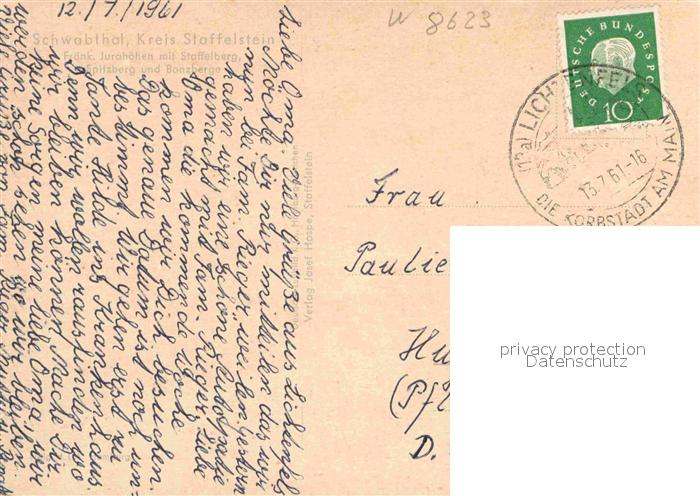 12./7./1961
W 8623
Schwabthal, Kreis Staffelstein
Fränk. Jurahöhen mit Staffelberg,
Spitzberg und Banzberge
Liebe Oma. Viele Grüße aus Lichtenfels
Möchte Dir nur mitteilen das wir
nun bei Fam. Rieger weilen, gestern
haben wir eine schöne Autofahrt
gemacht mit Fam. Rieger. Liebe
Oma die kommende Woche
kommen wir Dich besuchen.
Das genaue Datum ist noch un-
bestimmt. Wir gehen erst zu
Tante Hilde ins Krankenhaus.
Denn wir wollen rausfinden wo
wir bleiben können. Mache Dir
keine Sorgen meine liebe Oma wir
werden schon sehen wo wir bleiben
Verlag Josef Hospe, Staffelstein
DEUTSCHE BUNDESPOST
10
(13a) LICHTENFELS
13.7.61-16
DIE KORBSTADT AM MAIN
Frau
Paulie
Hu
(Pfl
D.
privacy protection
Datenschutz